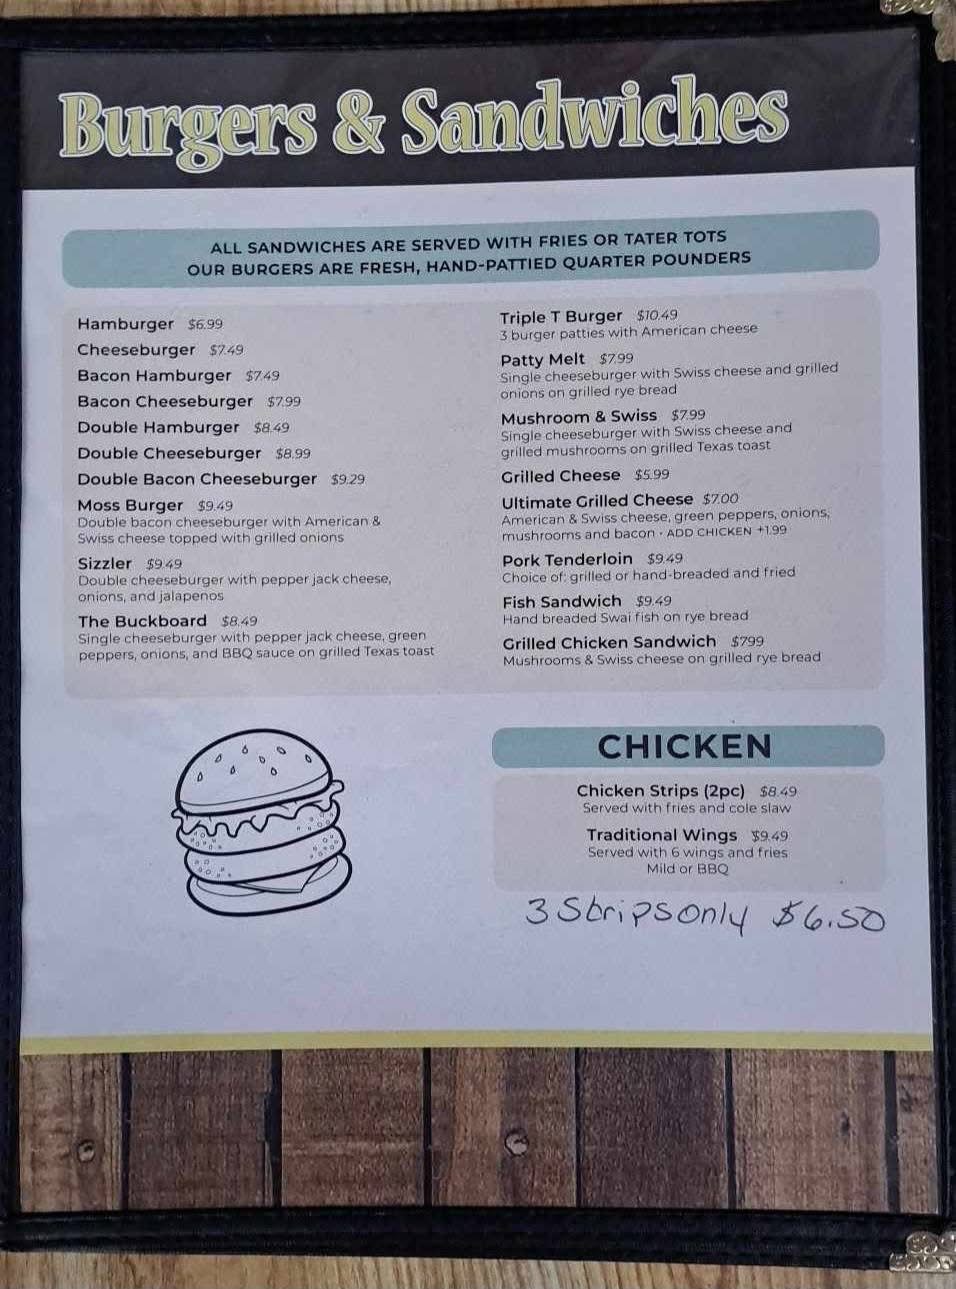 Burgers & Sandwiches
ALL SANDWICHES ARE SERVED WITH FRIES OR TATER TOTS
OUR BURGERS ARE FRESH, HAND-PATTIED QUARTER POUNDERS
Hamburger $6.99
Cheeseburger $7.49
Bacon Hamburger $7.49
Bacon Cheeseburger $7.99
Double Hamburger $8.49
Double Cheeseburger $8.99
Double Bacon Cheeseburger $9.29
Moss Burger $9.49
Double bacon cheeseburger with American &
Swiss cheese topped with grilled onions
Sizzler $9.49
Double cheeseburger with pepper jack cheese,
onions, and jalapenos
The Buckboard $8.49
Single cheeseburger with pepper jack cheese, green
peppers, onions, and BBQ sauce on grilled Texas toast
Triple T Burger $10.49
3 burger patties with American cheese
Patty Melt $7.99
Single cheeseburger with Swiss cheese and grilled
onions on grilled rye bread
Mushroom & Swiss $7.99
Single cheeseburger with Swiss cheese and
grilled mushrooms on grilled Texas toast
Grilled Cheese $5.99
Ultimate Grilled Cheese $7.00
American & Swiss cheese, green peppers, onions,
mushrooms and bacon • ADD CHICKEN +1.99
Pork Tenderloin $9.49
Choice of: grilled or hand-breaded and fried
Fish Sandwich $9.49
Hand breaded Swai fish on rye bread
Grilled Chicken Sandwich $799
Mushrooms & Swiss cheese on grilled rye bread
CHICKEN
Chicken Strips (2pc) $8.49
Served with fries and cole slaw
Traditional Wings $9.49
Served with 6 wings and fries
Mild or BBQ
3 Strips only $6.50